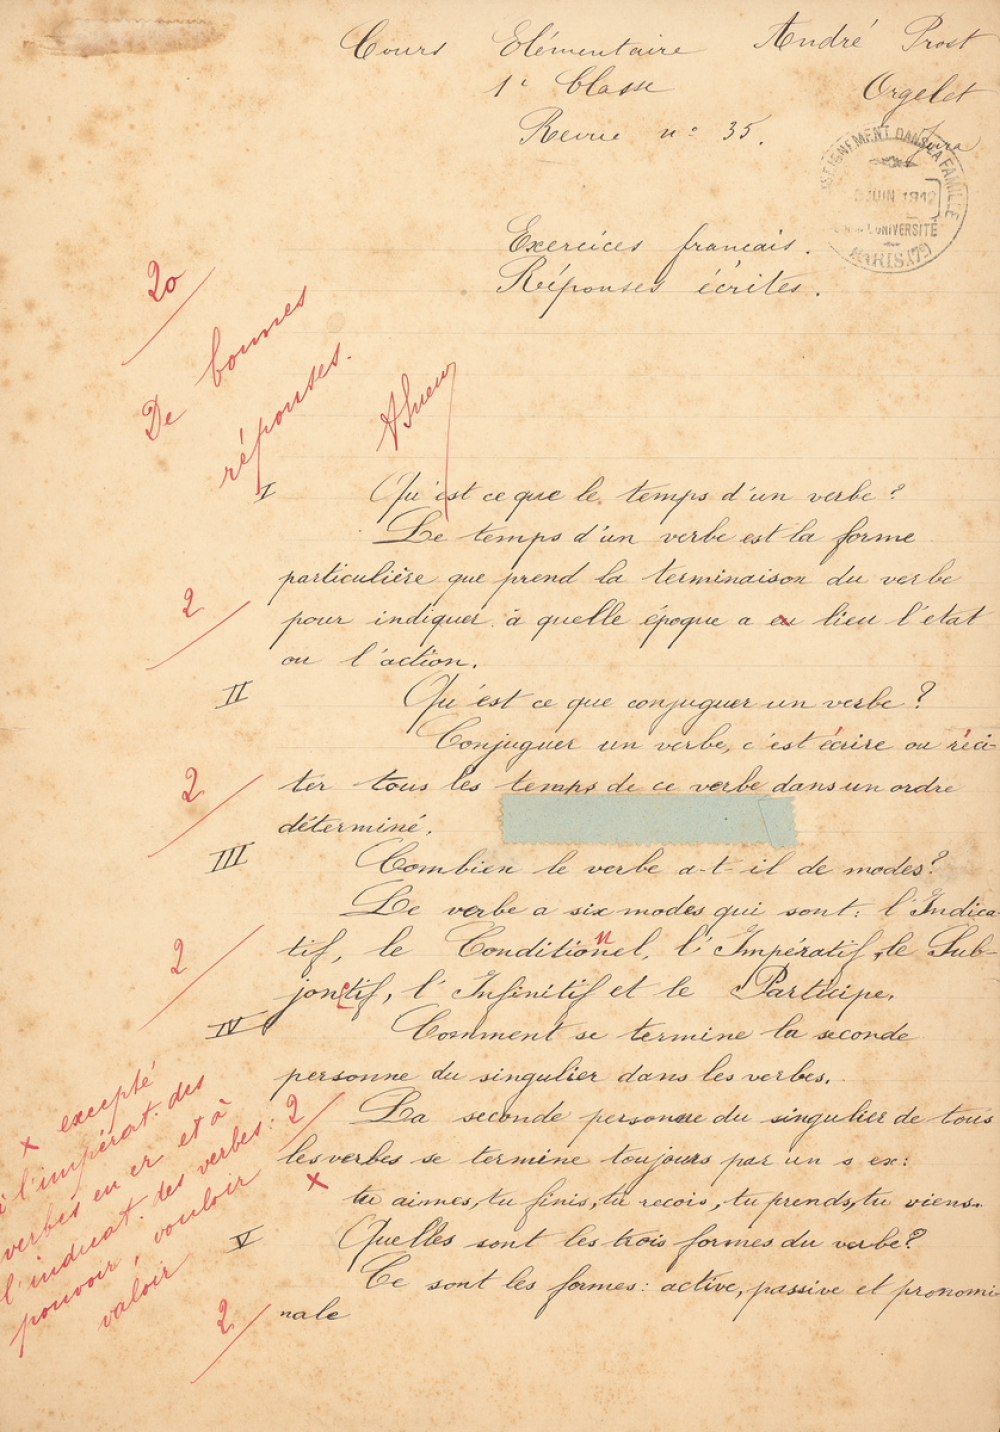 Cours Elémentaire André Prost
1e Classe Orgelet
Revue n° 35. Jura
ENSEIGNEMENT DANS LA FAMILLE
JUIN 1912
UNIVERSITÉ
PARIS (7e)
Exercices francais.
Réponses écrites.
20
De bonnes
réponses.
I Qu'est ce que le temps d'un verbe?
Le temps d'un verbe est la forme
particulière que prend la terminaison du verbe
2 pour indiquer à quelle époque a eu lieu l'état
ou l'action.
II Qu'est ce que conjuguer un verbe?
Conjuguer un verbe, c'est écrire ou réci-
2 ter tous les temps de ce verbe dans un ordre
déterminé.
III Combien le verbe a-t-il de modes?
Le verbe a six modes qui sont: l'Indica
2 tif, le Conditionnel, l'Impératif, le Sub-
jonctif, l'Infinitif et le Participe.
IV Comment se termine la seconde
personne du singulier dans les verbes.
2 La seconde personne du singulier de tous
les verbes se termine toujours par un s ex:
x tu aimes, tu finis, tu recois, tu prends, tu viens.
x excepté
à l'impérat. des
verbes en er et à
l'indicat. des verbes:
pouvoir, vouloir
valoir
V Quelles sont les trois formes du verbe?
Ce sont les formes: active, passive et pronomi
2 nale